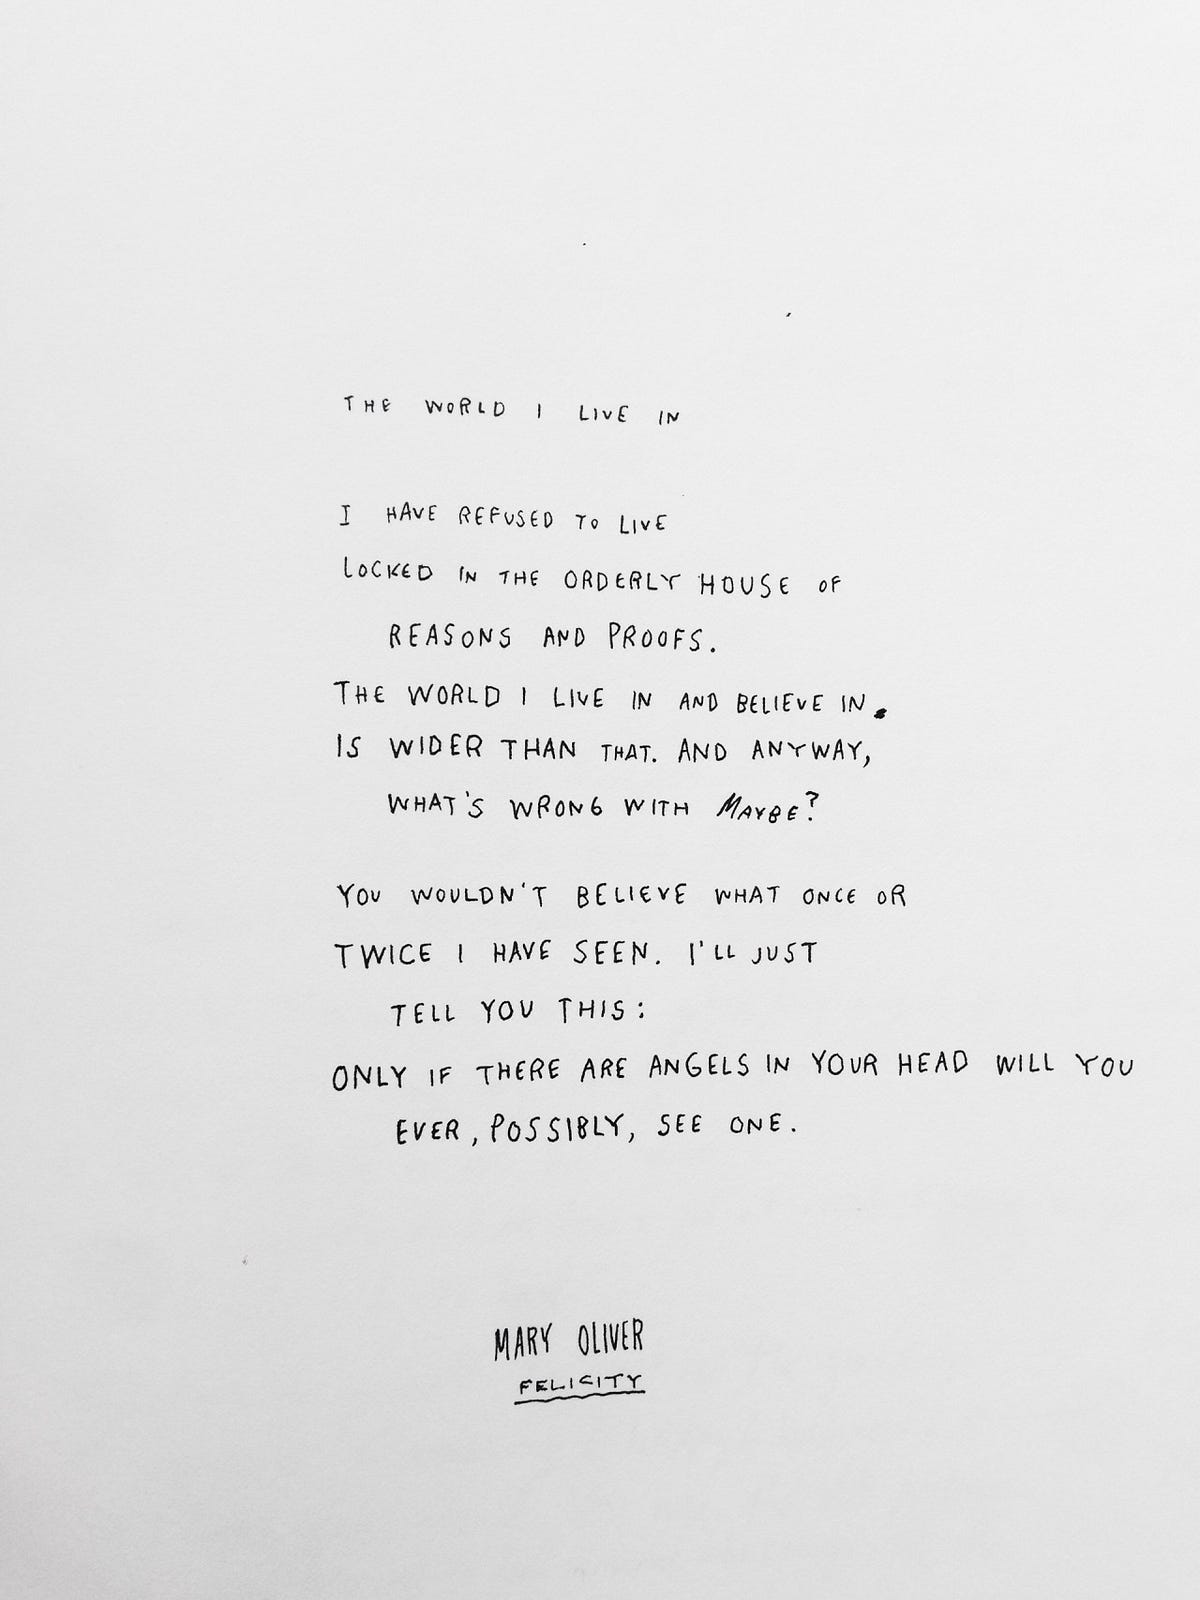 THE WORLD I LIVE IN
I HAVE REFUSED TO LIVE
LOCKED IN THE ORDERLY HOUSE OF
REASONS AND PROOFS.
THE WORLD I LIVE IN AND BELIEVE IN.
IS WIDER THAN THAT. AND ANYWAY,
WHAT'S WRONG WITH MAYBE?
YOU WOULDN'T BELIEVE WHAT ONCE OR
TWICE I HAVE SEEN. I'LL JUST
TELL YOU THIS:
ONLY IF THERE ARE ANGELS IN YOUR HEAD WILL YOU
EVER, POSSIBLY, SEE ONE.
MARY OLIVER
FELICITY